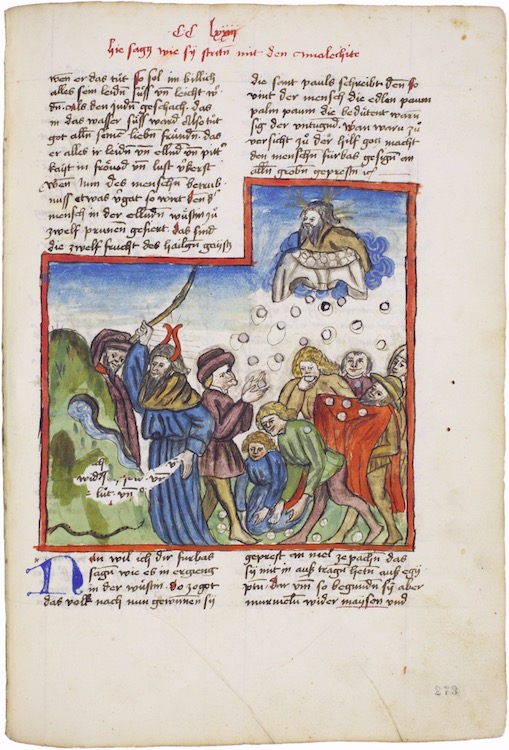 CC lxxiij
hie sagt wie sÿ stritn mit den amalechite
wen er das tůt so sol im billich
alles sein leidn süss vn leicht w
dn. als den judn geschach. das
in das wasser süss ward Also tůt
got alln seinē liebn fründn. das
er alles ir leidn vn ellnd vn pitt
kait in fröwd vn lust v̓kerst
Wen nun des menschn betrub
nuss etwas v̓gat so wirt den d
mensch in der ellndn wůstin zů
zwelf prunnen gefiert. das sind
die zwelf frucht des hailign gaists
die sant pauls schreibt den so
vint der mensch die edlen paum
palm paum die bedütent warn
sig der vntugnd. wan warū zů
versicht zů der hilf gots macht
den menschn fürbas gesignn an
alln grobn geprestn
widn
lüt. vn
Nun wil ich dir fürbas
sagn wie es in ergieng
in der wůstin. do zogot
das volk nach nun gewunnen sÿ
geprest an miel ze pachn das
sÿ mit in auss tragn hetn auss egÿ
ptn. dar vm so begundn sÿ aber
murmeln wider maysen vnd
273